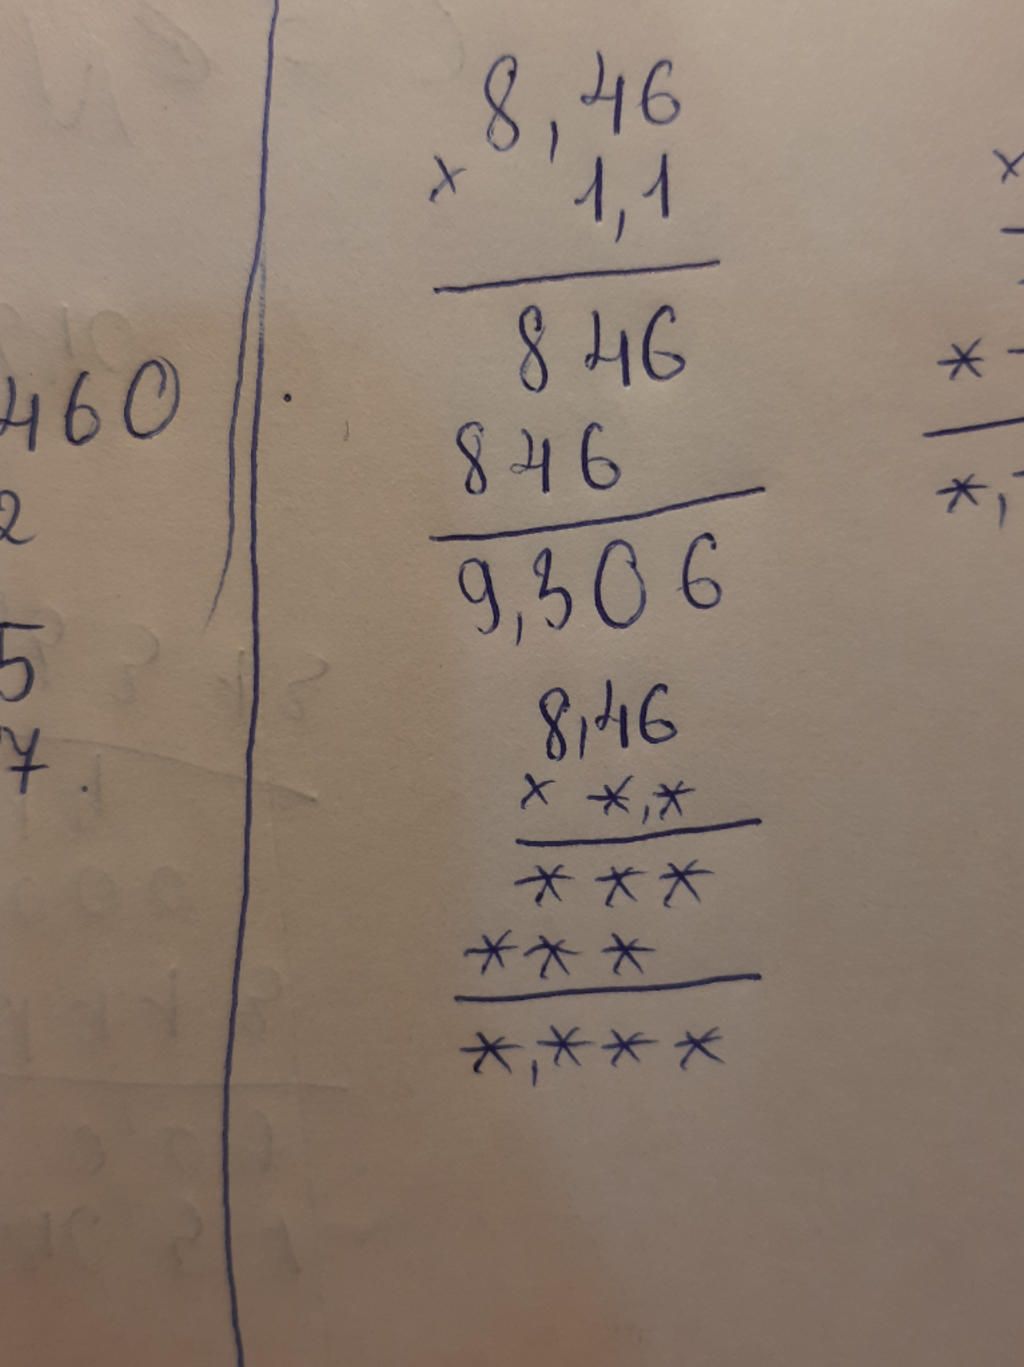 460
2
5
7
8,46
× 1,1
846
846
9,306
8,46
× *,*
* * *
* * *
*,* * *
×
*
*,